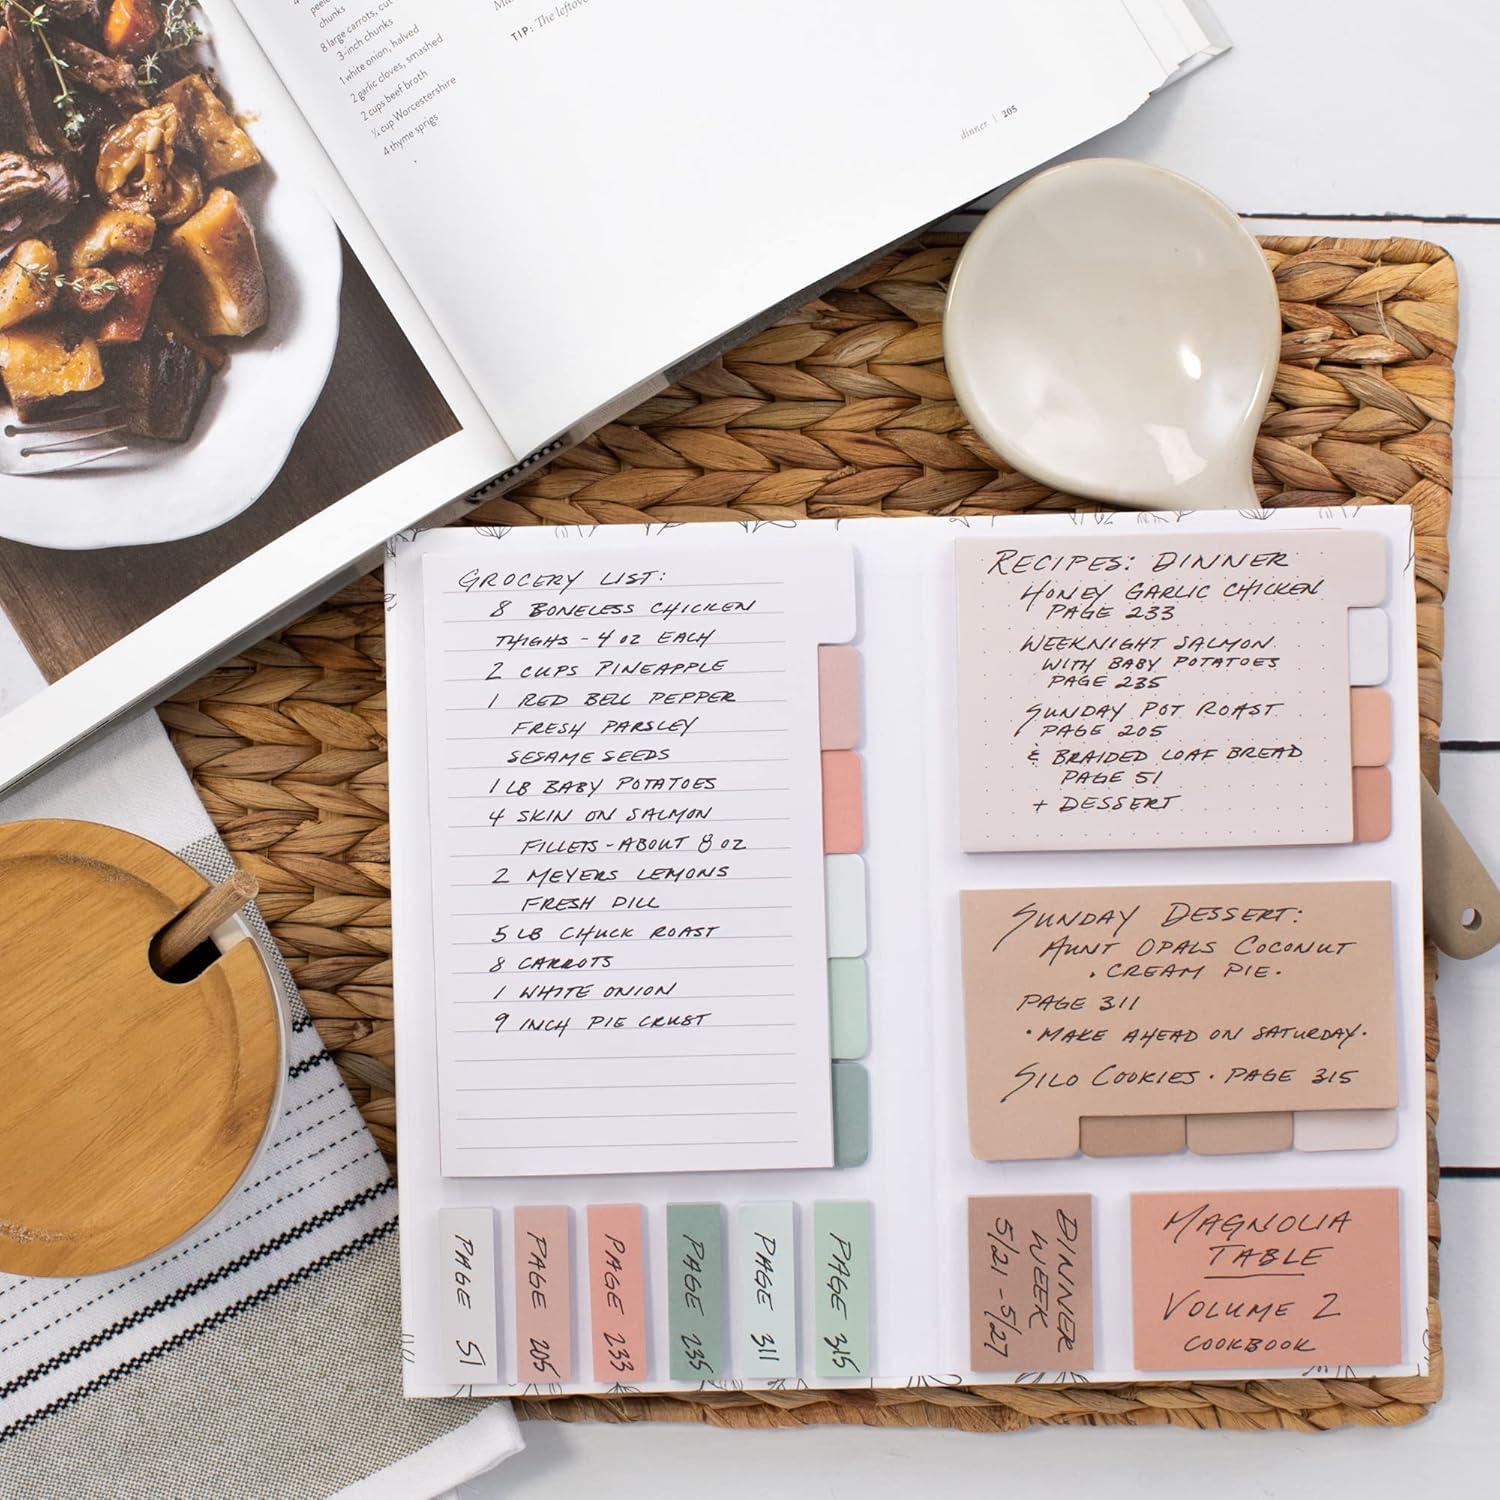 chunks
8 large carrots, cut
3-inch chunks
1 white onion, halved
2 garlic cloves, smashed
2 cups beef broth
¼ cup Worcestershire
4 thyme sprigs
TIP: The leftove
dinner | 205
GROCERY LIST:
8 BONELESS CHICKEN
THIGHS - 4 OZ EACH
2 CUPS PINEAPPLE
1 RED BELL PEPPER
FRESH PARSLEY
SESAME SEEDS
1 LB BABY POTATOES
4 SKIN ON SALMON
FILLETS - ABOUT 8 OZ
2 MEYERS LEMONS
FRESH DILL
5 LB CHUCK ROAST
8 CARROTS
1 WHITE ONION
9 INCH PIE CRUST
RECIPES: DINNER
HONEY GARLIC CHICKEN
PAGE 233
WEEKNIGHT SALMON
WITH BABY POTATOES
PAGE 235
SUNDAY POT ROAST
PAGE 205
& BRAIDED LOAF BREAD
PAGE 51
+ DESSERT
SUNDAY DESSERT:
AUNT OPALS COCONUT
• CREAM PIE •
PAGE 311
• MAKE AHEAD ON SATURDAY •
SILO COOKIES • PAGE 315
PAGE 51
PAGE 205
PAGE 233
PAGE 235
PAGE 311
PAGE 315
DINNER
WEEK
5/21 - 5/27
MAGNOLIA
TABLE
VOLUME 2
COOKBOOK